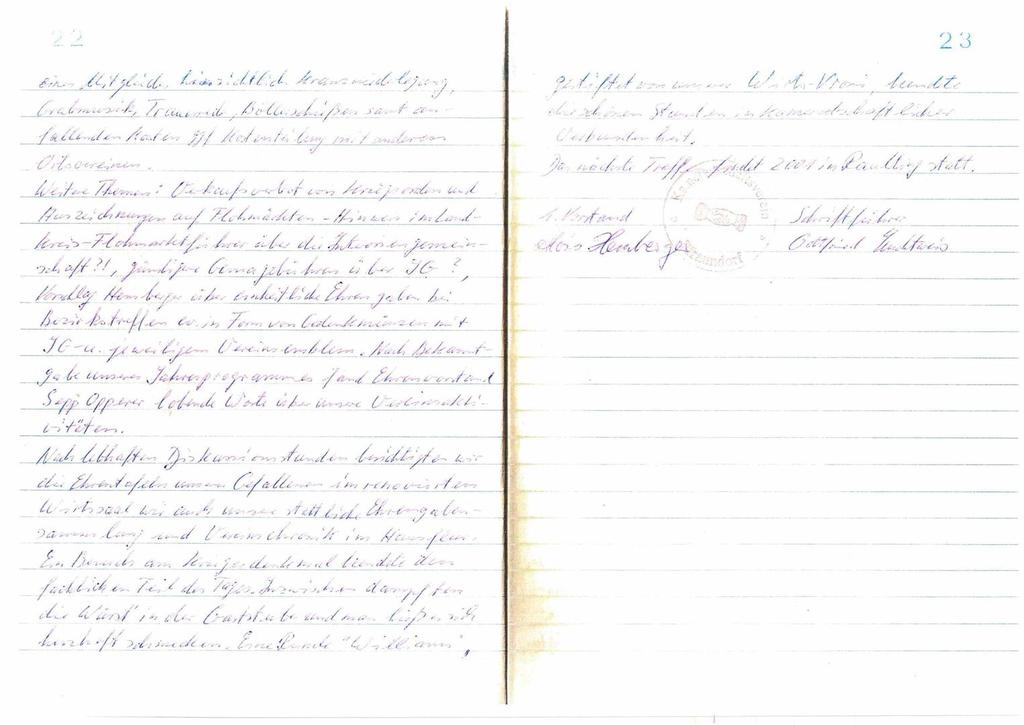 22
eines Mitglieds hinsichtlich Kranzniederlegung,
Grabmusik, Trauerrede, Böllerschießen samt an-
fallenden Kosten ggf Kostenteilung mit anderen
Ortsvereinen.
Weitere Themen: Verkaufsverbot von Kriegsorden und
Auszeichnungen auf Flohmärkten - Hinweis im Land-
kreis-Flohmarktführer über die Interessengemein-
schaft?!, günstigere Gemagebühren über IG?,
Vorschlag Hemberger über einheitliche Ehrengaben bei
Bezirkstreffen ev. in Form von Gedenkmünzen mit
IG- u. jeweiligem Vereinsemblem. Nach Bekannt-
gabe unseres Jahresprogrammes fand Ehrenvorstand
Sepp Opperer lobende Worte über unsere Vereinsakti-
vitäten.
Nach lebhaften Diskussionsstunden besichtigten wir
die Ehrentafeln unserer Gefallenen im renovierten
Wirtssaal wie auch unsere stattliche Ehrengaben-
sammlung und Vereinschronik im Hausflur.
Ein Besuch am Kriegerdenkmal beendete den
fachlichen Teil des Tages. Inzwischen dampften
die Würst' in der Gaststube und man ließ es sich
herzhaft schmecken. Eine Runde "Williams",
23
gestiftet von unserer Wirts-Vroni, beendete
die schönen Stunden in kameradschaftlicher
Verbundenheit.
Das nächste Treffen findet 2001 in statt.
1. Vorstand Schriftführer
Alois Hemberger Gottfried